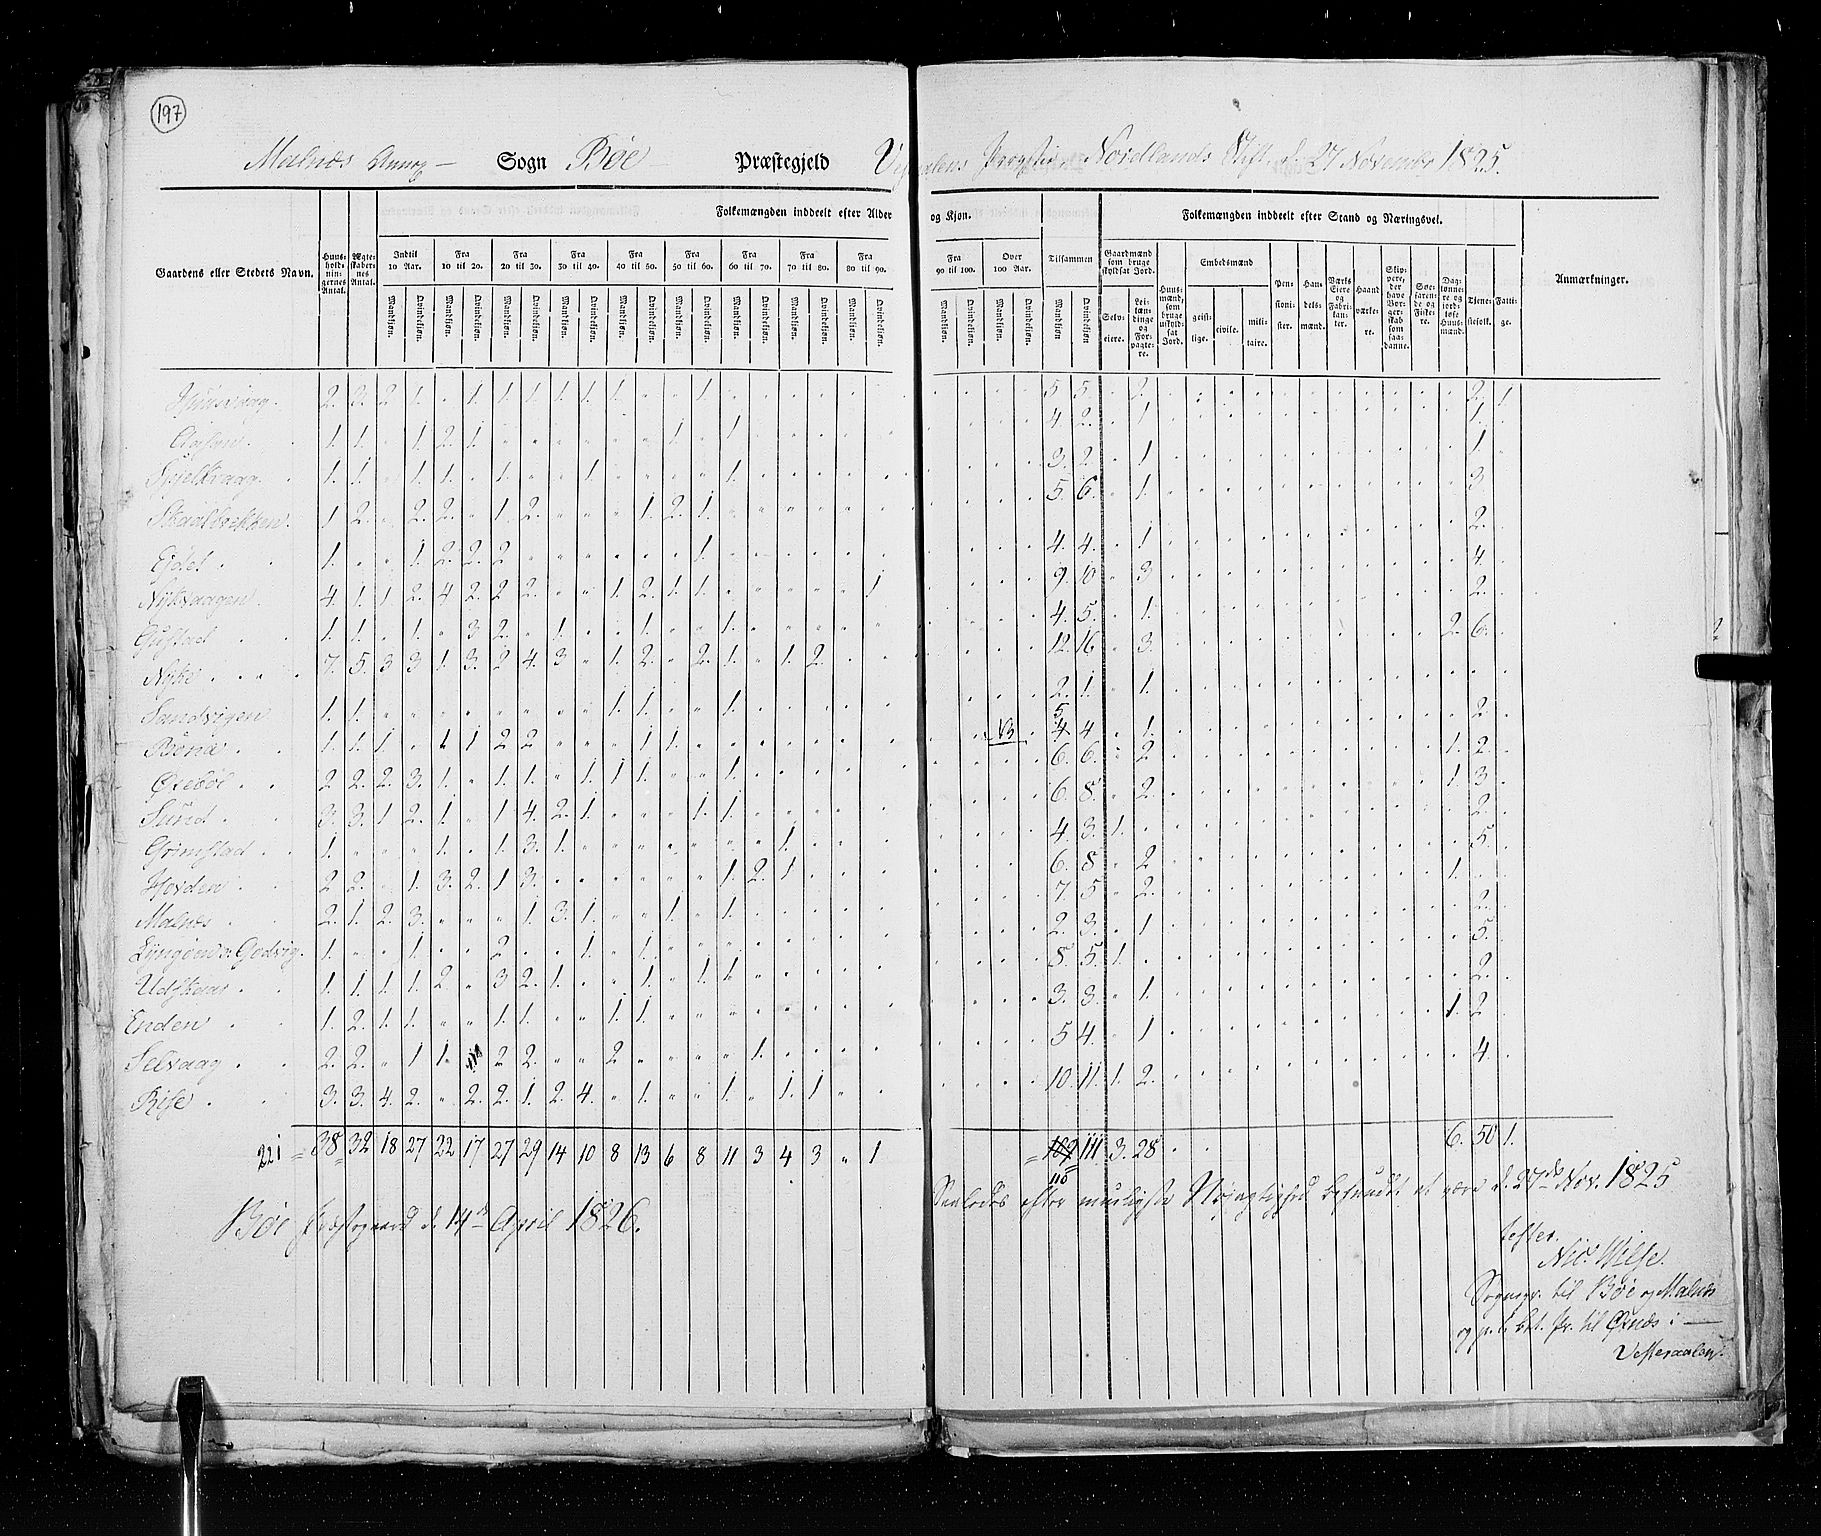 197
Malnæs Annex Sogn Bøe Præstegjeld Nordlands Stift d. 27 November 1825.
Gaardens eller Stedets Navn.
Huusholdningernes Antal.
Ægteskabernes Antal.
Folkemængden inddeelt efter Alder og Kjøn.
Indtil 10 Aar. Fra 10 til 20. Fra 20 til 30. Fra 30 til 40. Fra 40 til 50. Fra 50 til 60. Fra 60 til 70. Fra 70 til 80. Fra 80 til 90. Fra 90 til 100. Over 100 Aar. Tilsammen
Mandkjøn. Qvindekjøn.
Folkemængden inddeelt efter Stand og Næringsvei.
Gaardmænd som bruge skyldsat Jord. Selveiere. Leilændinge og Forpagtere.
Huusmænd, som bruge uskyldsat Jord.
Embedsmænd geistlige. civile. militaire.
Pensionister. Handelsmænd. Værks Eiere og Fabrikanter. Haandværkere. Skippere, der have Borgerskab som saadanne. Søefarende og Fiskere. Daglønnere og jordløse Huusmænd. Tjenestefolk. Fattige.
Anmærkninger.
Huusvaag. 2. 3. 2. 1. 1. 1. 1. 1. 1. 1. 1. 5 5 2. 2. 1.
1. 1. 1. 2. 1. 1. 1. 4. 2. 1 1.
Skjelkvaag. 1. 1. 1. 1. 1. 1. 1. 3. 2. 1 1
Skaalbrekken. 1 2. 2. 2. 1. 2. 1. 2. 1. 5. 6. 1. 3
Ejdet 1. 1. 2. 2. 2 1. 4. 4. 1 2.
Nykvaagen. 4. 1. 1 2. 4 2. 2 2. 1 2. 1 1. 1 9. 10 3 4.
Gustad 1. 1. 1. 3 2. 1. 1. 1. 4. 5. 1. 2.
Nyke 7. 5. 3 3. 1. 3. 2 4. 3 1. 2. 2. 1. 1. 2. 12. 16 3. 2. 6.
Sandvigen 1. 1. 1. 1. 1. 2. 1. 1.
Bönæ 1. 1. 1. 1 1 2 2. 1 1. 5 4 4 1. 2.
Øxebøe 2 2. 2. 3. 1. 1. 1. 1. 1 1. 1. 6. 6. 2 1. 2.
Sund 3. 3. 1 2. 1. 1 4. 2. 1. 1. 1. 6. 8. 2. 1. 3
Grimstad 1. 1. 1. 3. 1. 1. 4. 3. 1. 2.
Hovden 2 2. 1. 3. 2. 1 3. 1. 2. 1 6. 8 2 5.
Malnæs 2. 1. 2. 3. 1. 3. 1. 1. 1. 7. 5 2. 1.
1. 1. 2. 1. 1. 2. 3. 1 2.
Udskaar 1. 1. 1. 1. 2. 3 2. 1. 1. 1. 1. 8. 5. 1. 5.
Enden 1. 2. 1. 1. 1. 1. 1. 1. 3. 3. 1. 2.
Selvaag 2. 2. 1 1. 2 2. 2 1. 5 4. 1 1. 2
Rise 3. 3. 4. 2. 2. 2. 1. 2. 4. 1. 1. 1. 1. 10. 11. 1. 2. 4.
221 38 32 18 27 22 17 27 29 14 10 8 13 6 8 11 3 4 3 1 109 111 3. 28 6. 50 1.
110
Saaledes efter mueligste Nøjagtighed befundet at være d. 27de Nov. 1825
Bøe Præstegaard d. 14de April 1826.
tester.
Sognepr. til Bøe og Malnæs
Øxnæs i
Vesteraalen.